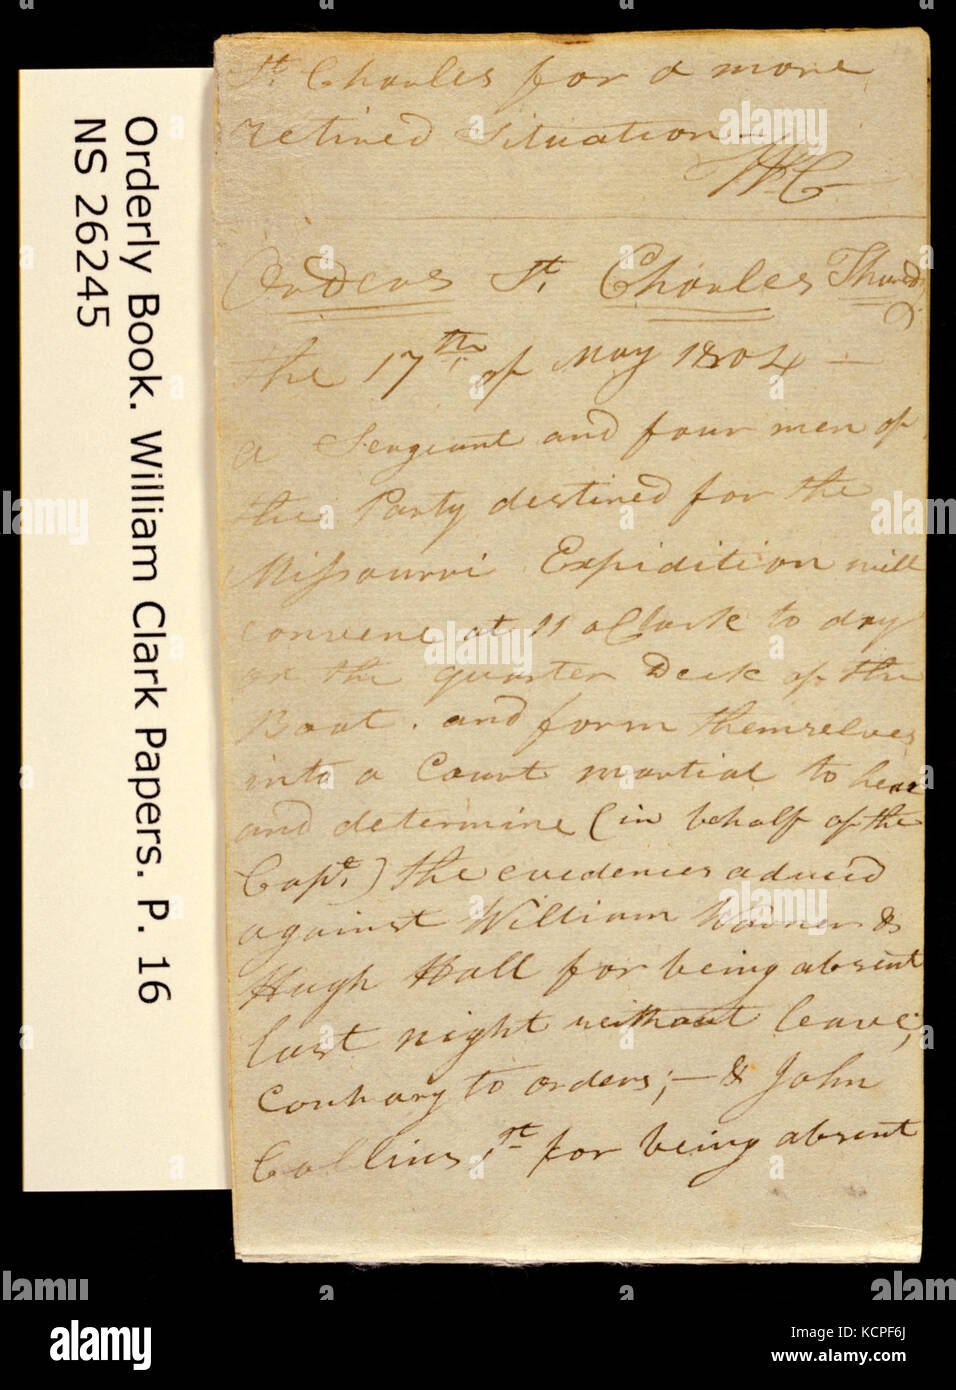 Orderly Book. William Clark Papers. P. 16
NS 26245
St. Charles for a more
retired Situation —
WC
Orders St. Charles Thursd.
the 17th of May 1804 —
a Sergeant and four men of
the Party destined for the
Missourri Expidition will
convene at 11 oClock to day
on the quarter Deck of the
Boat. and form themselves
into a Court martial to hear
and determine (in behalf of the
Capt.) the evidences aduced
against William Warner &
Hugh Hall for being absent
last night without leave;
contrary to orders; — & John
Collins 1st for being absent
alamy
Image ID: KCPF6J
www.alamy.com